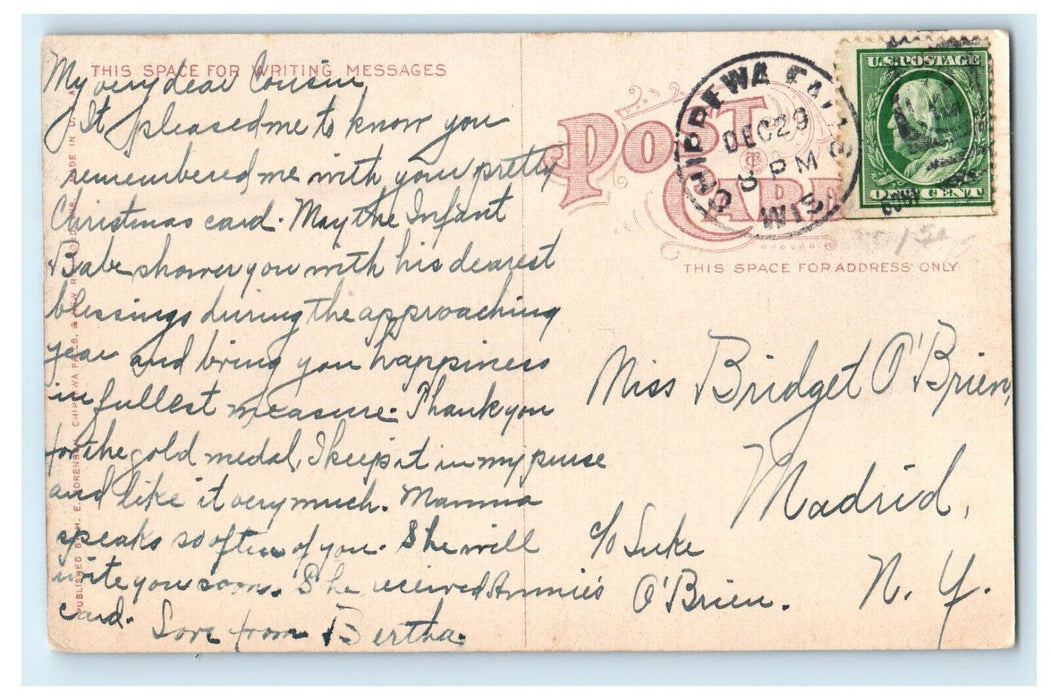 THIS SPACE FOR WRITING MESSAGES
My very dear Cousin,
It pleased me to know you
remembered me with your pretty
Christmas card. May the Infant
Babe shower you with his dearest
blessings during the approaching
year and bring you happiness
in fullest measure. Thank you
for the gold medal, I keep it in my purse
and like it very much. Mamma
speaks so often of you. She will
write you soon. She received Annie's
card. Love from Bertha.
POST
CARD
CHIPPEWA FALLS
DEC 29
PM
WIS
U.S. POSTAGE
ONE CENT
THIS SPACE FOR ADDRESS ONLY
Miss Bridget O'Brien,
Madrid,
N. Y.
c/o Luke
O'Brien.
PUBLISHED BY H. E.
CHIPPEWA FALLS,